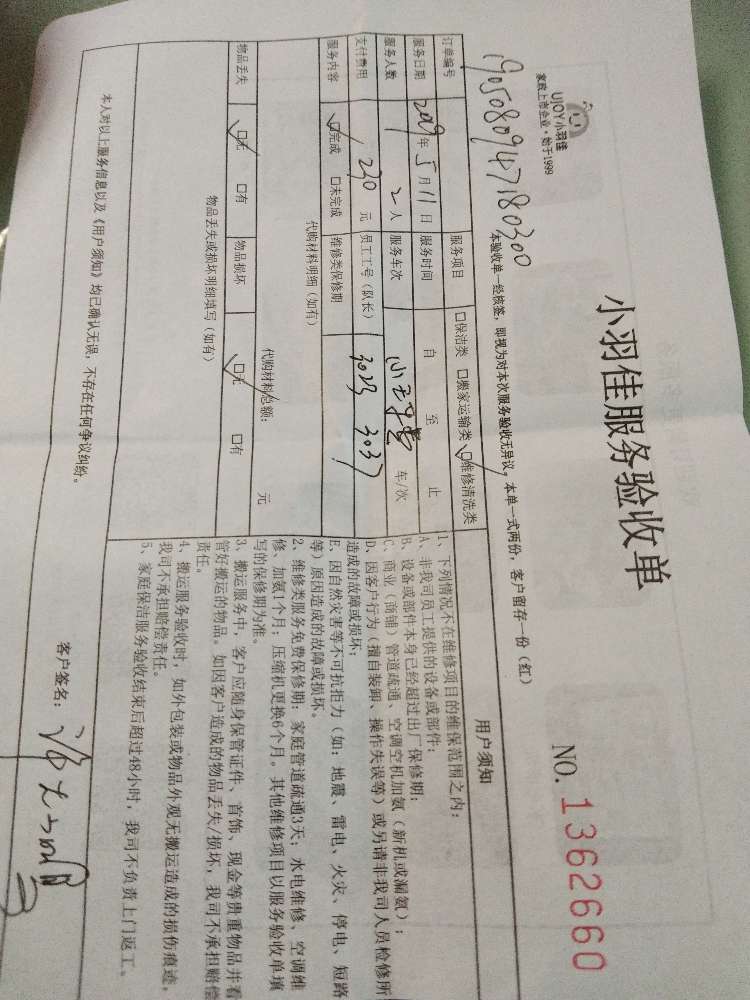 UJOY小羽佳
家政上市企业·始于1999
小羽佳服务验收单
NO. 1362660
1905080947180300
本验收单一经核签，即视为对本次服务验收无异议。本单一式两份，客户留存一份（红）
订单编号 服务项目 口保洁类 口搬家运输类 口维修清洗类
服务日期 2019年5月11日 服务时间 自 至 止
服务人数 2人 服务车次 车/次
支付费用 230 元 员工工号（队长） 3023 3037
服务内容 口完成 口未完成 维修类保修期
代购材料明细（如有）
代购材料总额： 元
物品丢失 口无 口有 物品损坏 口无 口有
物品丢失或损坏明细填写（如有）
用户须知
1、下列情况不在维修项目的维保范围之内：
A、非我司员工提供的设备或部件；
B、设备或部件本身已经超过出厂保修期；
C、商业（商铺）管道疏通、空调空机加氨（新机或漏氨）；
D、因客户行为（擅自装卸、操作失误等）或另请非我司人员检修所
造成的故障或损坏；
E、因自然灾害等不可抗拒力（如：地震、雷电、火灾、停电、短路
等）原因造成的故障或损坏。
2、维修类服务免费保修期：家庭管道疏通3天；水电维修、空调维
修、加氨1个月；压缩机更换6个月。其他维修项目以服务验收单填
写的保修期为准。
3、搬运服务中，客户应随身保管证件、首饰、现金等贵重物品并看
管好搬运的物品。如因客户造成的物品丢失/损坏，我司不承担赔偿
责任。
4、搬运服务验收时，如外包装或物品外观无搬运造成的损伤痕迹，
我司不承担赔偿责任。
5、家庭保洁服务验收结束后超过48小时，我司不负责上门返工。
本人对以上服务信息以及《用户须知》均已确认无误，不存在任何争议纠纷。
客户签名：